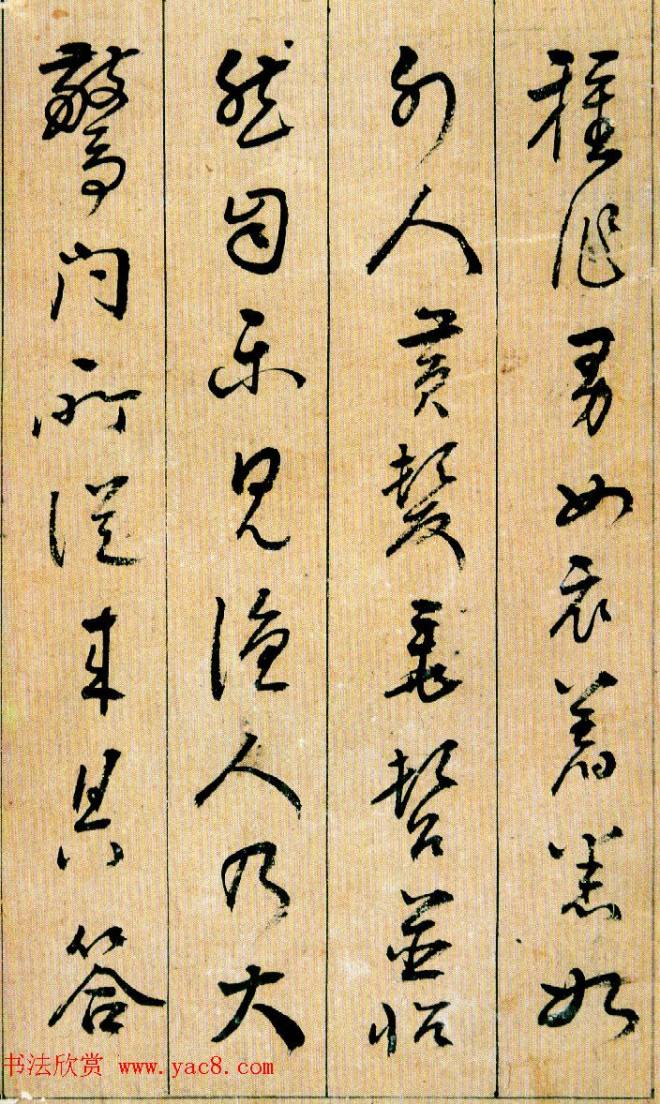 種作男女衣着悉如
外人黄髮垂髫並怡
然自樂見漁人乃大
驚问所從来具答
书法欣赏 www.yac8.com